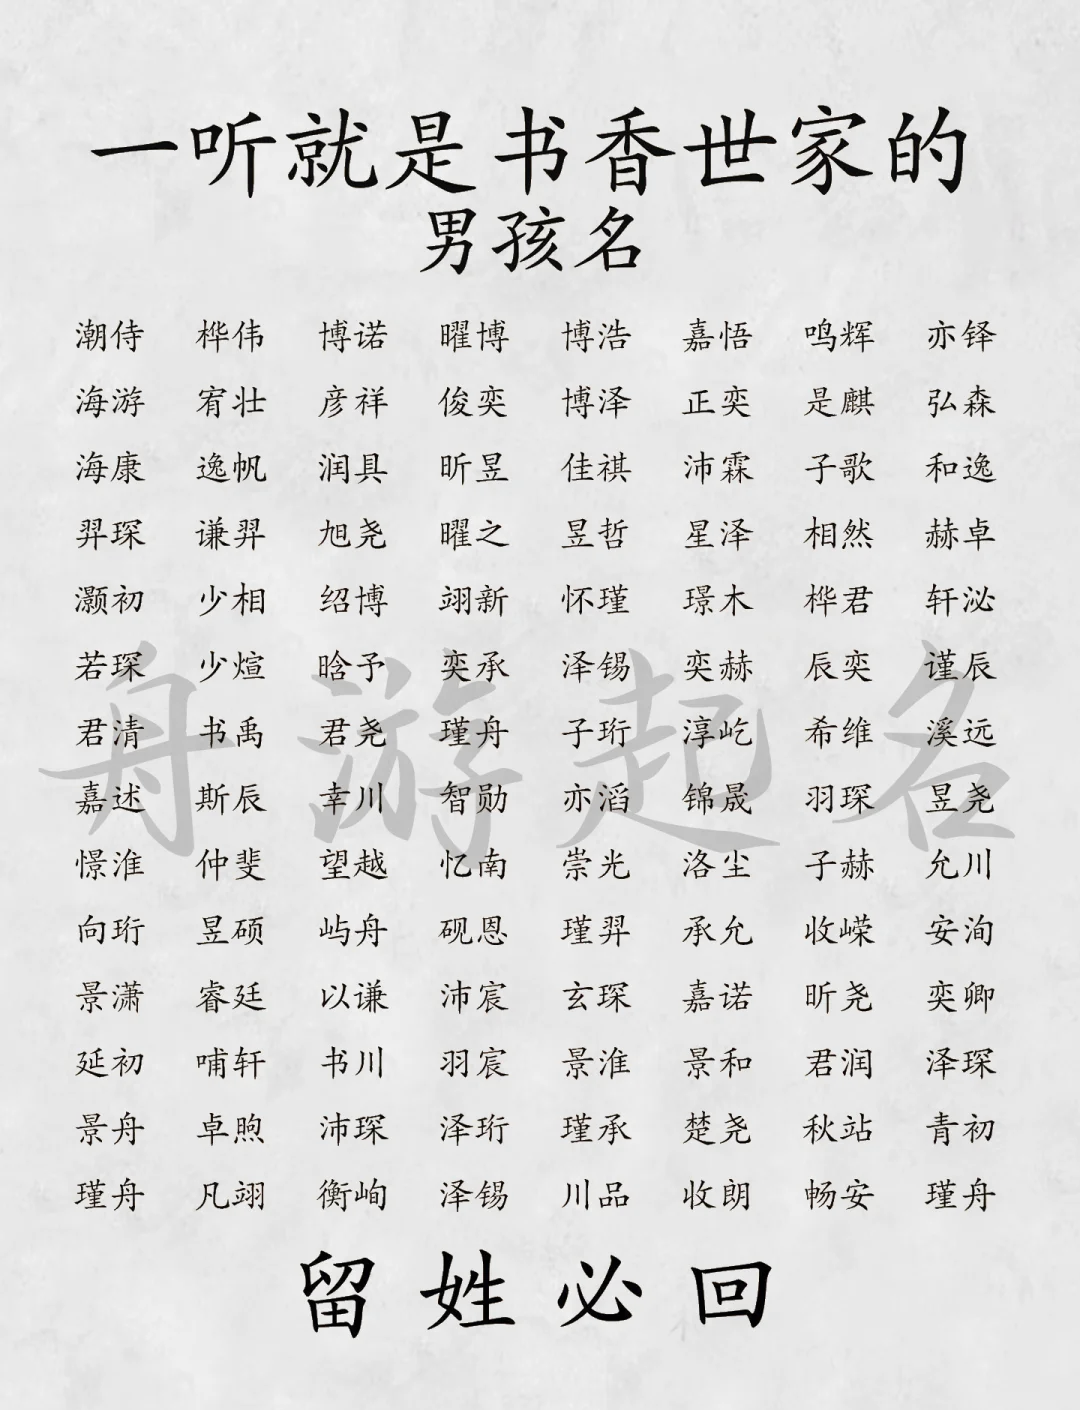 一听就是书香世家的
男孩名
潮侍 桦伟 博诺 曜博 博浩 嘉悟 鸣辉 亦铎
海游 宥壮 彦祥 俊奕 博泽 正奕 是麒 弘森
海康 逸帆 润具 昕昱 佳祺 沛霖 子歌 和逸
羿琛 谦羿 旭尧 曜之 昱哲 星泽 相然 赫卓
灏初 少相 绍博 翊新 怀瑾 璟木 桦君 轩泌
若琛 少煊 晗予 奕承 泽锡 奕赫 辰奕 谨辰
君清 书禹 君尧 瑾舟 子珩 淳屹 希维 溪远
舟游起名
嘉述 斯辰 幸川 智勋 亦滔 锦晟 羽琛 昱尧
憬淮 仲斐 望越 忆南 崇光 洛尘 子赫 允川
向珩 昱硕 屿舟 砚恩 瑾羿 承允 收嵘 安洵
景潇 睿廷 以谦 沛宸 玄琛 嘉诺 昕尧 奕卿
延初 哺轩 书川 羽宸 景淮 景和 君润 泽琛
景舟 卓煦 沛琛 泽珩 瑾承 楚尧 秋站 青初
瑾舟 凡翊 衡峋 泽锡 川品 收朗 畅安 瑾舟
留姓必回